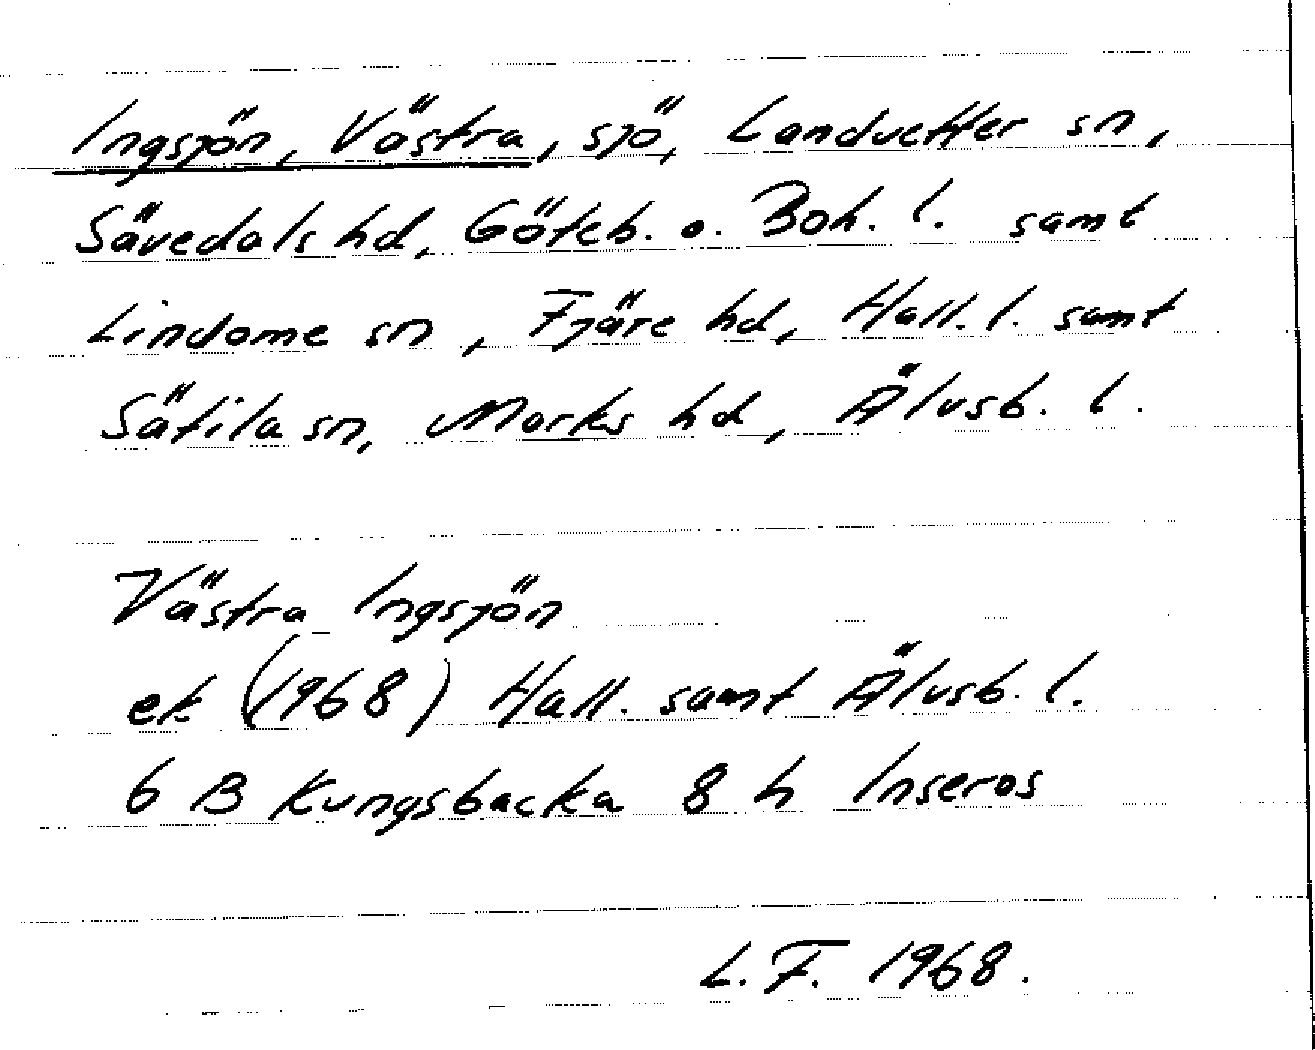 Ingsjön, Västra, sjö, Landvetter sn,
Sävedals hd, Göteb. o. Boh. l. samt
Lindome sn, Fjäre hd, Hall. l. samt
Sätila sn, Marks hd, Älvsb. l.
Västra Ingsjön
ek (1968) Hall. samt Älvsb. l.
6 B Kungsbacka 8 h Inseros
L.F. 1968.